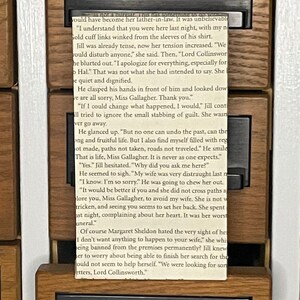 ould have become her father-in-law. It was unbelievable
"I understand that you were here last night, with my
old cuff links winked from the sleeves of his shirt.
Jill was already tense, now her tension increased. "We
ould disturb anyone," she said. Then, "Lord Collinswor
he blurted out. "I apologize for everything, especially fo
Hal." That was not what she had intended to say. She
e quiet and dignified.
He clasped his hands in front of him and looked dow
e are all sorry, Miss Gallagher. Thank you."
"If I could change what happened, I would," Jill cont
ll tried to ignore the small stabbing of guilt. She wan
er go away.
He glanced up. "But no one can undo the past, can the
ng and fruitful life. But I also find myself filled with reg
ot made, paths not taken, roads not traveled," He smile
That is life, Miss Gallagher. It is never as one expects."
"Yes." Jill hesitated. "Why did you ask me here?"
He seemed to sigh. "My wife was very distraught last n
"I know. I'm so sorry." He was going to chew her out.
"It would be better if you and she did not cross paths a
lore you, Miss Gallagher, to avoid my wife. She is not w
ricken, and seeing you seems to set her back. She spent
at night, complaining about her heart. It was her worst
uneral."
Of course Margaret Sheldon hated the very sight of he
I don't want anything to happen to your wife," she whi
being banned from the premises permanently? Jill knew
er to worry about being able to finish her search for the
ould not seem to help herself. "We were looking for som
etters, Lord Collinsworth."